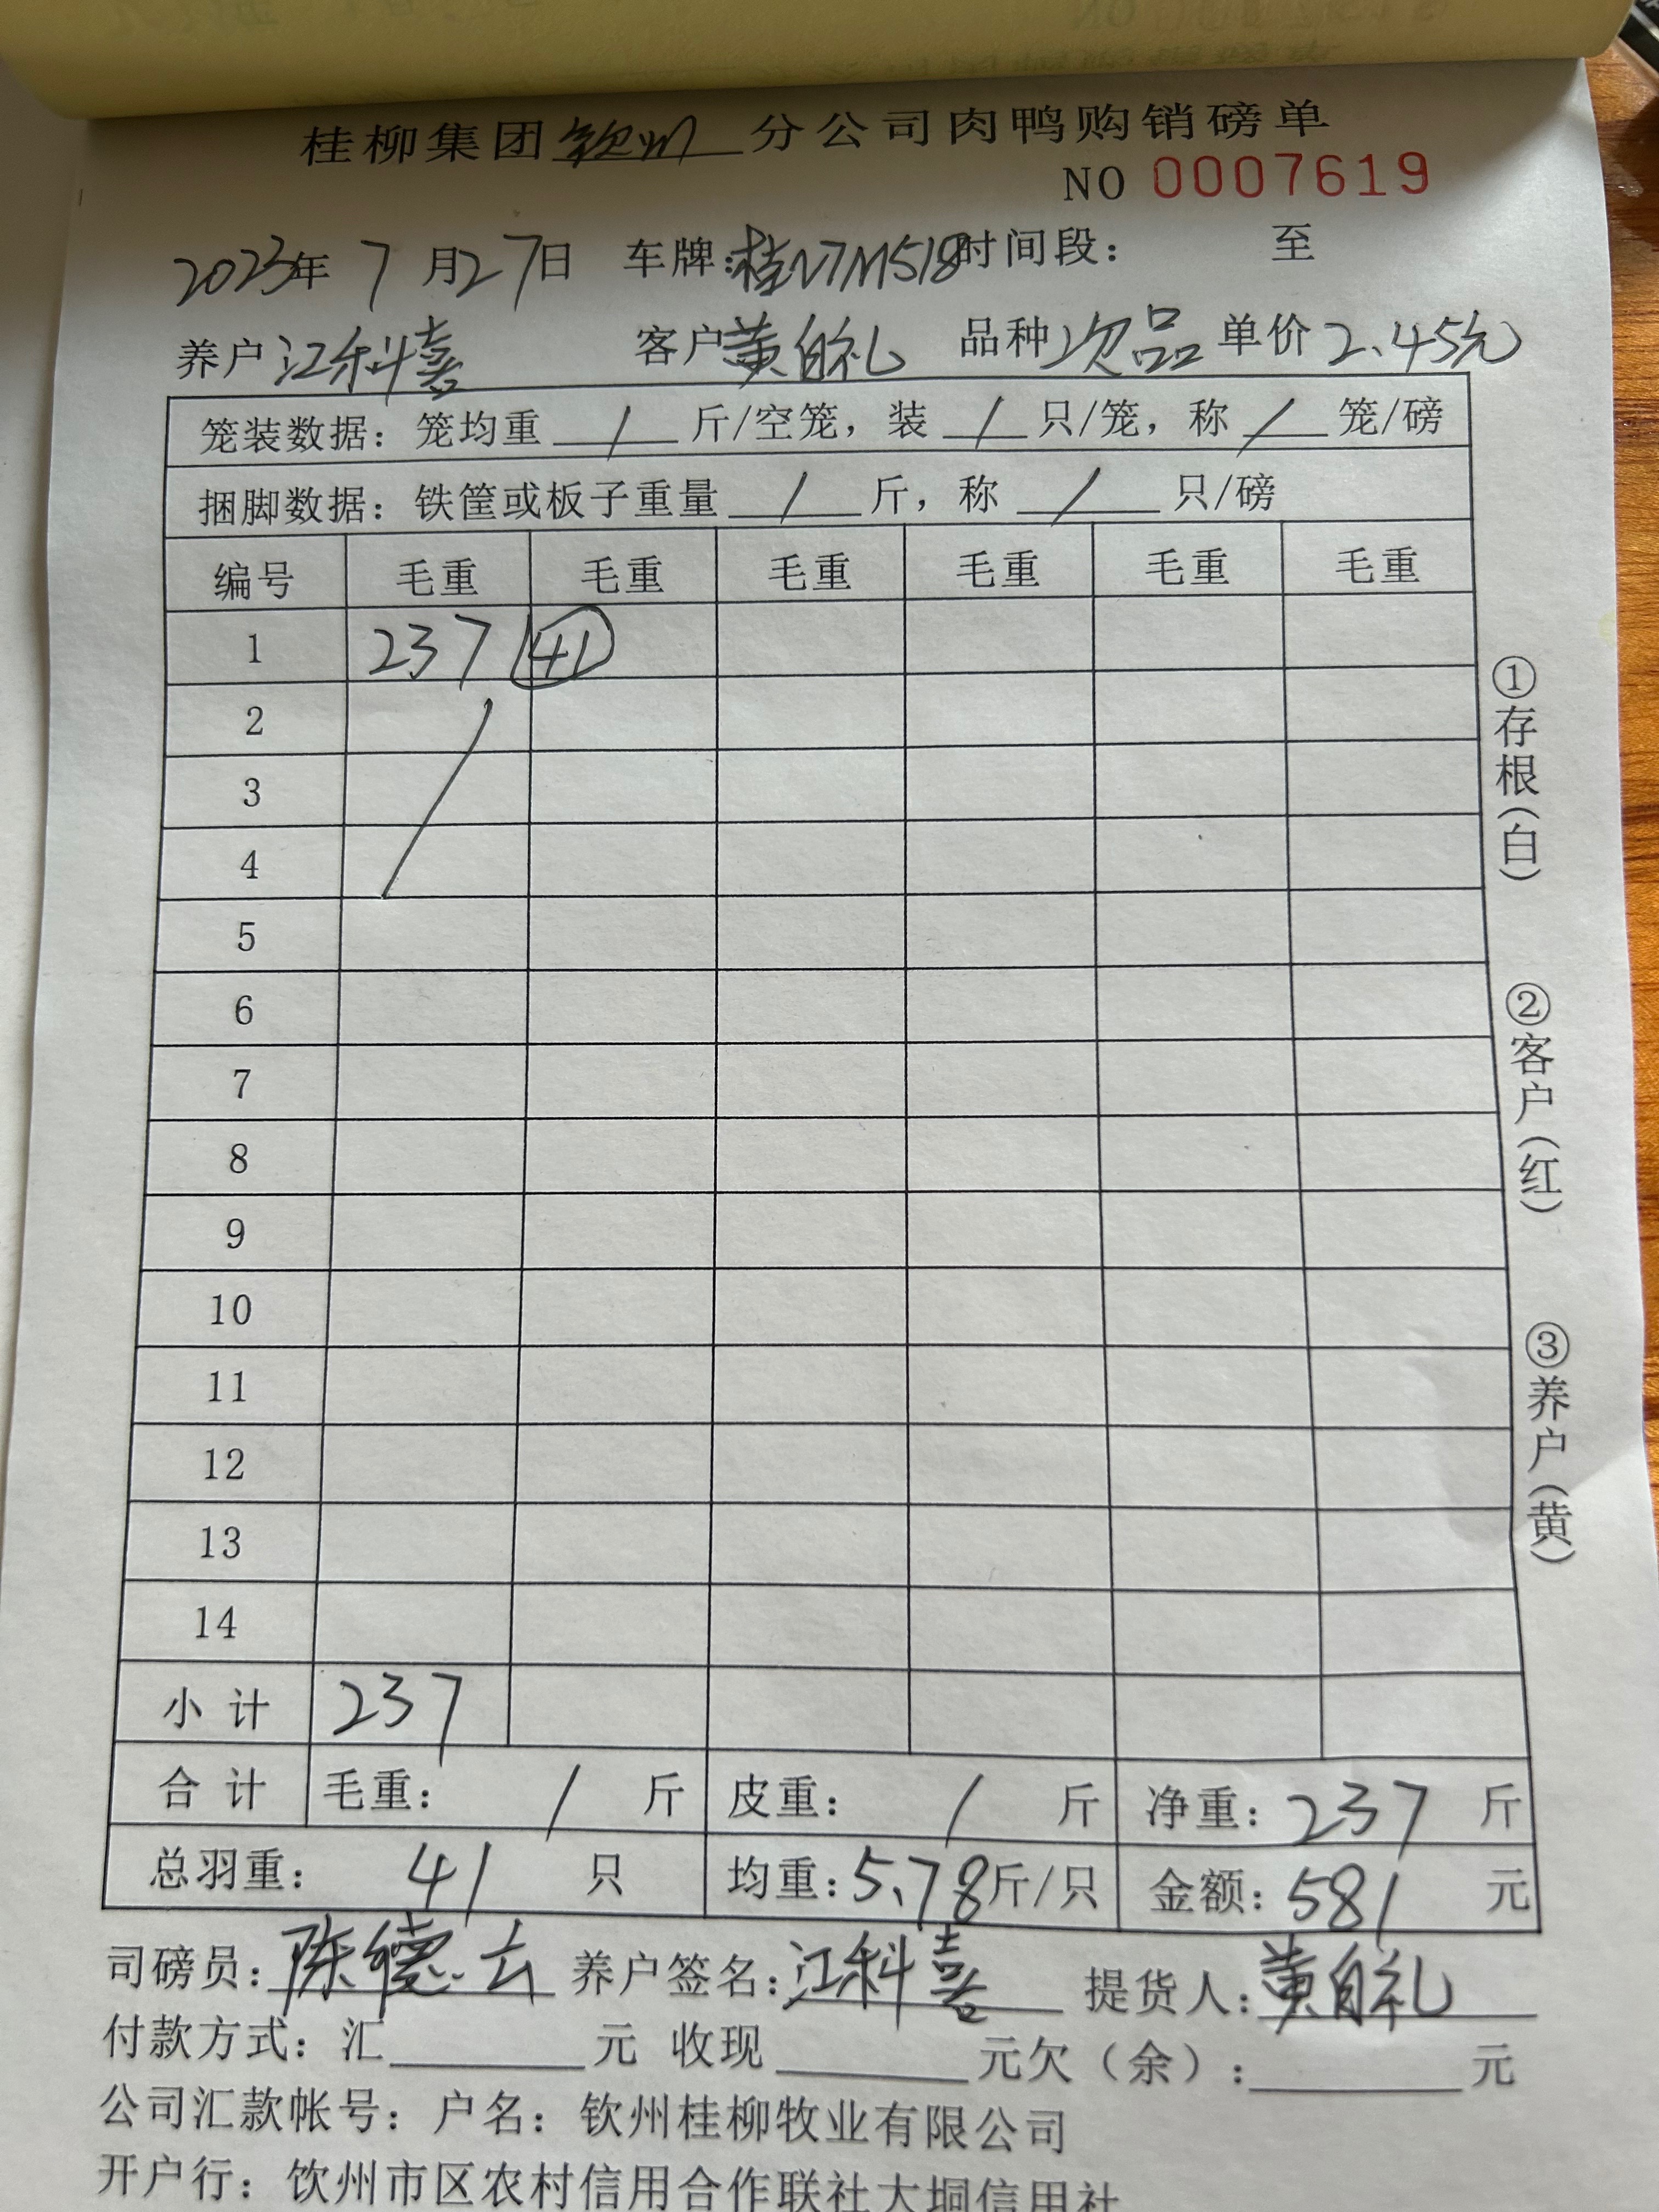 桂柳集团钦州分公司肉鸭购销磅单
NO 0007619
2023年7月27日 车牌:桂N7M518时间段: 至
养户江科喜 客户黄自礼 品种次品 单价2.45元
笼装数据:笼均重/斤/空笼,装/只/笼,称/笼/磅
捆脚数据:铁筐或板子重量/斤,称/只/磅
编号 毛重 毛重 毛重 毛重 毛重 毛重
1 237 41
2
3
4
5
6
7
8
9
10
11
12
13
14
小计 237
合计 毛重: / 斤 皮重: / 斤 净重:237斤
总羽重: 41 只 均重:5.78斤/只 金额:581 元
司磅员:陈德云 养户签名:江科喜 提货人:黄自礼
付款方式:汇______元 收现______元欠(余):______元
公司汇款帐号:户名:钦州桂柳牧业有限公司
开户行:钦州市区农村信用合作联社大垌信用社
①存根(白)
②客户(红)
③养户(黄)